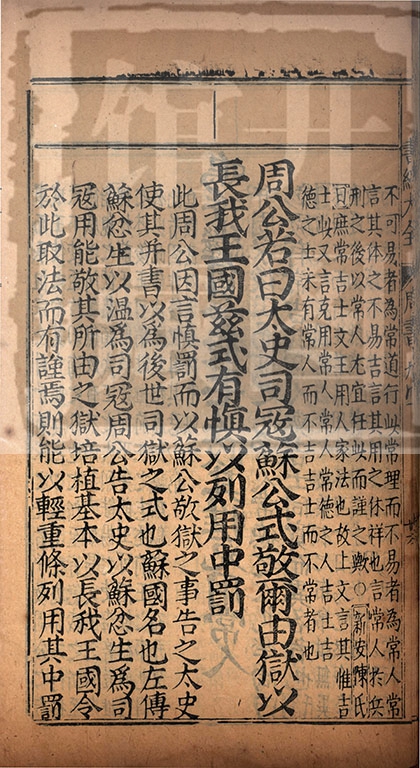 不可易者為常道行此常理而不易者為常人常
言其体之不易吉言其用之休祥也言常人於兵
刑之後以常人尤宜任此而謹之歟○新安陳氏
曰庶常吉士文王用人家法也故上文言其惟吉
士此又言克用常人常人常德之人吉士吉
德之士未有常人而不吉吉士而不常者也
周公若曰太史司冦蘇公式敬爾由獄以
長我王國兹式有慎以列用中罰
此周公因言慎罰而以蘇公敬獄之事告之太史
使其并書以為後世司獄之式也蘇國名也左傳
蘇忿生以温為司冦周公告太史以蘇忿生為司
冦用能敬其所由之獄培植基本以長我王國令
於此取法而有謹焉則能以輕重條列用其中罰